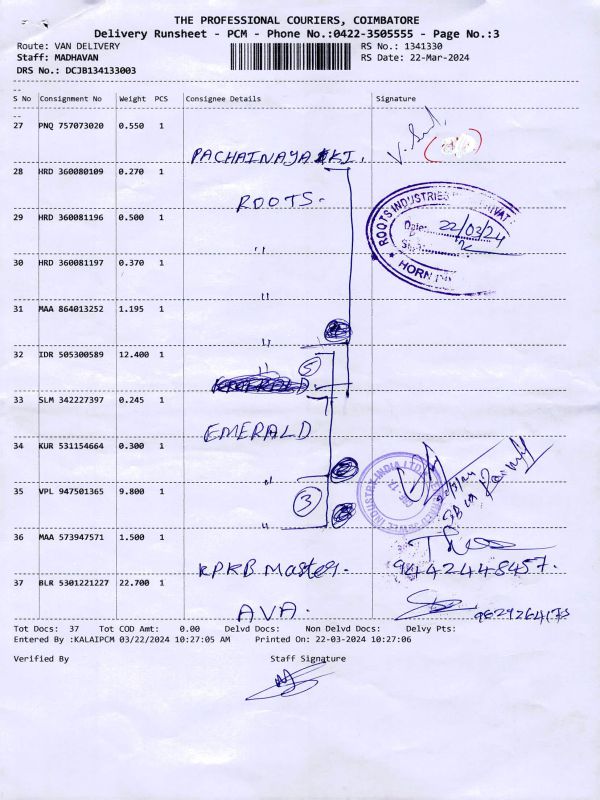 THE PROFESSIONAL COURIERS, COIMBATORE
Delivery Runsheet - PCM - Phone No.:0422-3505555 - Page No.:3
Route: VAN DELIVERY RS No.: 1341330
Staff: MADHAVAN RS Date: 22-Mar-2024
DRS No.: DCJB134133003
--
S No Consignment No Weight PCS Consignee Details Signature
--
27 PNQ 757073020 0.550 1
PACHAINAYAKI. V.
28 HRD 360080109 0.270 1
ROOTS.
ROOTS INDUSTRIES
Date: 22/03/24
HORN
29 HRD 360081196 0.500 1
"
30 HRD 360081197 0.370 1
"
31 MAA 864013252 1.195 1
"
32 IDR 505300589 12.400 1
" 5
33 SLM 342227397 0.245 1
EMERALD
34 KUR 531154664 0.300 1
"
35 VPL 947501365 9.800 1
3
"
36 MAA 573947571 1.500 1
KPRB Master. 9442448457.
37 BLR 5301221227 22.700 1
AVA.
Tot Docs: 37 Tot COD Amt: 0.00 Delvd Docs: Non Delvd Docs: Delvy Pts:
Entered By :KALAIPCM 03/22/2024 10:27:05 AM Printed On: 22-03-2024 10:27:06
Verified By Staff Signature